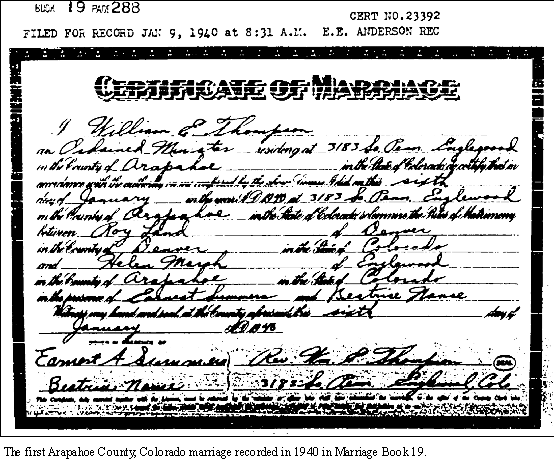 BOOK 19 PAGE 288
CERT NO. 23392
FILED FOR RECORD JAN 9, 1940 at 8:31 A.M. E.E. ANDERSON REC
CERTIFICATE OF MARRIAGE
I William E Thompson
an Ordained Minister residing at 3183 So. Penn. Englewood
in the County of Arapahoe in the State of Colorado, do certify that in
accordance with the authority on me conferred by the above License, I did on this sixth
day of January in the year A.D. 1940 at 3183 So. Penn. Englewood
in the County of Arapahoe in the State of Colorado solemnize the Rites of Matrimony
between Roy Land of Denver
in the County of Denver in the State of Colorado
and Helen Marsh of Englewood
in the County of Arapahoe in the State of Colorado
in the presence of Earnest Summers and Beatrice Nance
Witness my hand and seal at the County aforesaid this sixth day of
January A.D. 1940
Earnest A. Summers
Rev. Wm. E. Thompson
SEAL
Beatrice Nance
3183 So. Penn. Englewood Colo
The first Arapahoe County, Colorado marriage recorded in 1940 in Marriage Book 19.